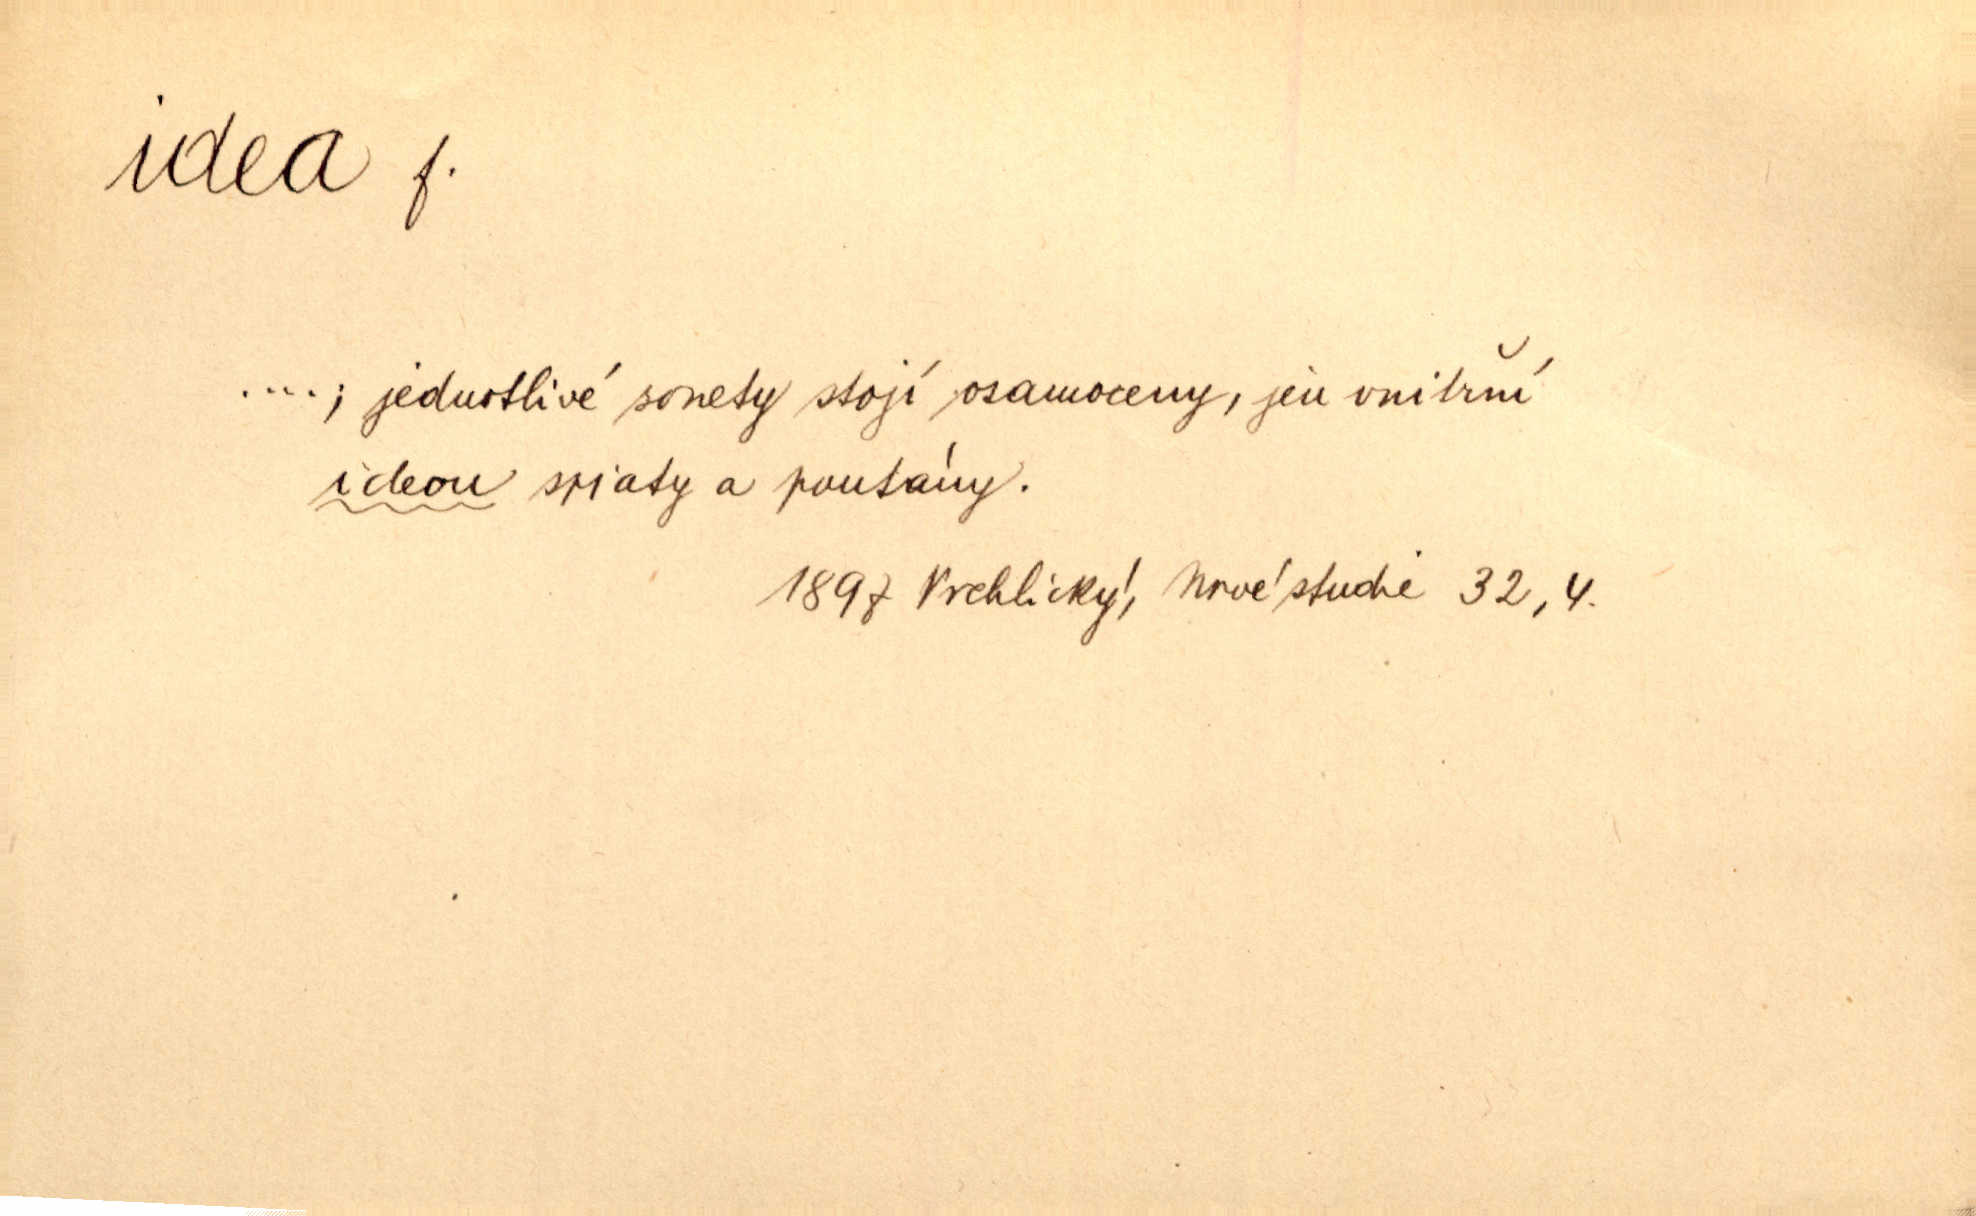 idea f.
....; jednotlivé sonety stojí osamoceny, jen vnitřní
ideou spiaty a poutány.
1897 Vrchlický, Nové studie 32, 4.